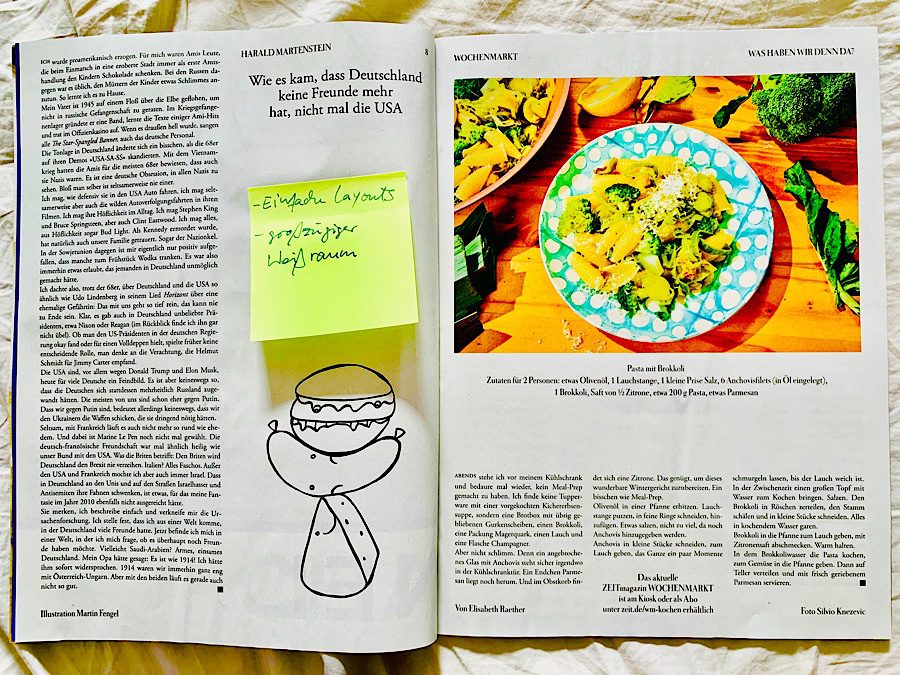 HARALD MARTENSTEIN
8
Wie es kam, dass Deutschland
keine Freunde mehr
hat, nicht mal die USA
ICH wurde proamerikanisch erzogen. Für mich waren Amis Leute,
die beim Einmarsch in eine eroberte Stadt immer als erste Amts-
handlung den Kindern Schokolade schenken. Bei den Russen da-
gegen war es üblich, den Müttern der Kinder etwas Schlimmes an-
zutun. So lernte ich es zu Hause.
Mein Vater ist 1945 auf einem Floß über die Elbe geflohen, um
nicht in russische Gefangenschaft zu geraten. Im Kriegsgefange-
nenlager gründete er eine Band, lernte die Texte einiger Ami-Hits
und trat im Offizierskasino auf. Wenn es draußen hell wurde, sangen
alle The Star-Spangled Banner, auch das deutsche Personal.
Die Tonlage in Deutschland änderte sich ein bisschen, als die 68er
auf ihren Demos »USA-SA-SS« skandierten. Mit dem Vietnam-
krieg hatten die Amis für die meisten 68er bewiesen, dass auch
sie Nazis waren. Es ist eine deutsche Obsession, in allen Nazis zu
sehen. Bloß man selber ist seltsamerweise nie einer.
Ich mag, wie defensiv sie in den USA Auto fahren, ich mag selt-
samerweise aber auch die wilden Autoverfolgungsfahrten in ihren
Filmen. Ich mag ihre Höflichkeit im Alltag. Ich mag Stephen King
und Bruce Springsteen, aber auch Clint Eastwood. Ich mag alles,
aus Höflichkeit sogar Bud Light. Als Kennedy ermordet wurde,
hat natürlich auch unsere Familie getrauert. Sogar der Nazionkel.
In der Sowjetunion dagegen ist mir eigentlich nur positiv aufge-
fallen, dass manche zum Frühstück Wodka tranken. Es war also
immerhin etwas erlaubt, das jemanden in Deutschland unmöglich
gemacht hätte.
Ich dachte also, trotz der 68er, über Deutschland und die USA so
ähnlich wie Udo Lindenberg in seinem Lied Horizont über eine
ehemalige Gefährtin: Das mit uns geht so tief rein, das kann nie
zu Ende sein. Klar, es gab auch in Deutschland unbeliebte Prä-
sidenten, etwa Nixon oder Reagan (im Rückblick finde ich ihn gar
nicht übel). Ob man den US-Präsidenten in der deutschen Regie-
rung okay fand oder für einen Volldeppen hielt, spielte früher keine
entscheidende Rolle, man denke an die Verachtung, die Helmut
Schmidt für Jimmy Carter empfand.
Die USA sind, vor allem wegen Donald Trump und Elon Musk,
heute für viele Deutsche ein Feindbild. Es ist aber keineswegs so,
dass die Deutschen sich stattdessen mehrheitlich Russland zuge-
wandt hätten. Die meisten von uns sind schon eher gegen Putin.
Dass wir gegen Putin sind, bedeutet allerdings keineswegs, dass wir
den Ukrainern die Waffen schicken, die sie dringend nötig hätten.
Seltsam, mit Frankreich läuft es auch nicht mehr so rund wie ehe-
dem. Und dabei ist Marine Le Pen noch nicht mal gewählt. Die
deutsch-französische Freundschaft war mal ähnlich heilig wie
unser Bund mit den USA. Was die Briten betrifft: Den Briten wird
Deutschland den Brexit nie verzeihen. Italien? Alles Faschos. Außer
den USA und Frankreich mochte ich aber auch immer Israel. Dass
in Deutschland an den Unis und auf den Straßen Israelhasser und
Antisemiten ihre Fahnen schwenken, ist etwas, für das meine Fan-
tasie im Jahre 2010 ebenfalls nicht ausgereicht hätte.
Sie merken, ich beschreibe einfach und verkneife mir die Ur-
sachenforschung. Ich stelle fest, dass ich aus einer Welt komme,
in der Deutschland viele Freunde hatte. Jetzt befinde ich mich in
einer Welt, in der ich mich frage, ob es überhaupt noch Freun-
de haben möchte. Vielleicht Saudi-Arabien? Armes, einsames
Deutschland. Mein Opa hätte gesagt: Es ist wie 1914! Ich hätte
ihm sofort widersprochen. 1914 waren wir immerhin ganz eng
mit Österreich-Ungarn. Aber mit den beiden läuft es gerade auch
nicht so gut.
Illustration Martin Fengel
- Einfache Layouts
- großzügiger
Weißraum
WOCHENMARKT
WAS HABEN WIR DENN DA?
Pasta mit Brokkoli
Zutaten für 2 Personen: etwas Olivenöl, 1 Lauchstange, 1 kleine Prise Salz, 6 Anchovisfilets (in Öl eingelegt),
1 Brokkoli, Saft von ½ Zitrone, etwa 200 g Pasta, etwas Parmesan
ABENDS stehe ich vor meinem Kühlschrank
und bedaure mal wieder, kein Meal-Prep
gemacht zu haben. Ich finde keine Tupper-
ware mit einer vorgekochten Kichererbsen-
suppe, sondern eine Brotbox mit übrig ge-
bliebenen Gurkenscheiben, einen Brokkoli,
eine Packung Magerquark, einen Lauch und
eine Flasche Champagner.
Aber nicht schlimm. Denn ein angebroche-
nes Glas mit Anchovis steht sicher irgendwo
in der Kühlschranktür. Ein Endchen Parme-
san liegt noch herum. Und im Obstkorb fin-
det sich eine Zitrone. Das genügt, um dieses
wunderbare Wintergericht zuzubereiten. Ein
bisschen wie Meal-Prep.
Olivenöl in einer Pfanne erhitzen. Lauch-
stange putzen, in feine Ringe schneiden, hin-
zufügen. Etwas salzen, nicht zu viel, da noch
Anchovis hinzugegeben werden.
Anchovis in kleine Stücke schneiden, zum
Lauch geben, das Ganze ein paar Momente
schmurgeln lassen, bis der Lauch weich ist.
In der Zwischenzeit einen großen Topf mit
Wasser zum Kochen bringen. Salzen. Den
Brokkoli in Röschen zerteilen, den Stamm
schälen und in kleine Stücke schneiden. Alles
in kochendem Wasser garen.
Brokkoli in die Pfanne zum Lauch geben, mit
Zitronensaft abschmecken. Warm halten.
In dem Brokkoliwasser die Pasta kochen,
zum Gemüse in die Pfanne geben. Dann auf
Teller verteilen und mit frisch geriebenem
Parmesan servieren.
Das aktuelle
ZEITmagazin WOCHENMARKT
ist am Kiosk oder als Abo
unter zeit.de/wm-kochen erhältlich
Von Elisabeth Raether
Foto Silvio Knezevic